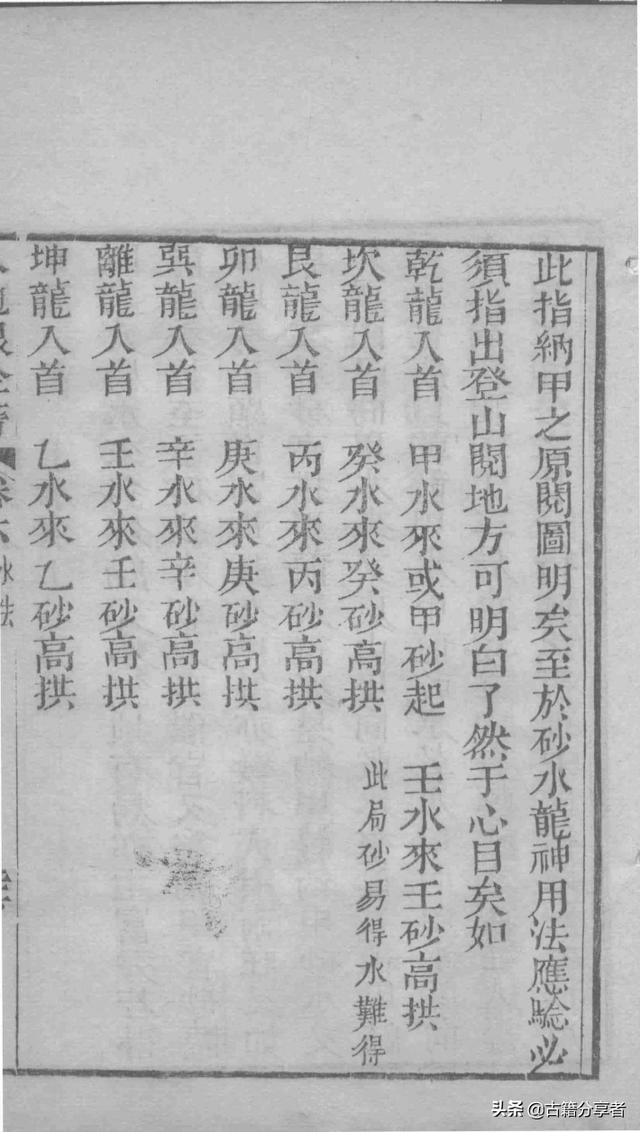 此指納甲之原閱圖明矣至於砂水龍神用法應驗必
須指出登山閱地方可明白了然于心目矣如
乾龍入首　甲水來或甲砂起　壬水來壬砂高拱
坎龍入首　癸水來癸砂高拱　此局砂易得水難得
艮龍入首　丙水來丙砂高拱
卯龍入首　庚水來庚砂高拱
巽龍入首　辛水來辛砂高拱
離龍入首　壬水來壬砂高拱
坤龍入首　乙水來乙砂高拱
卷六
头条 @古籍分享者